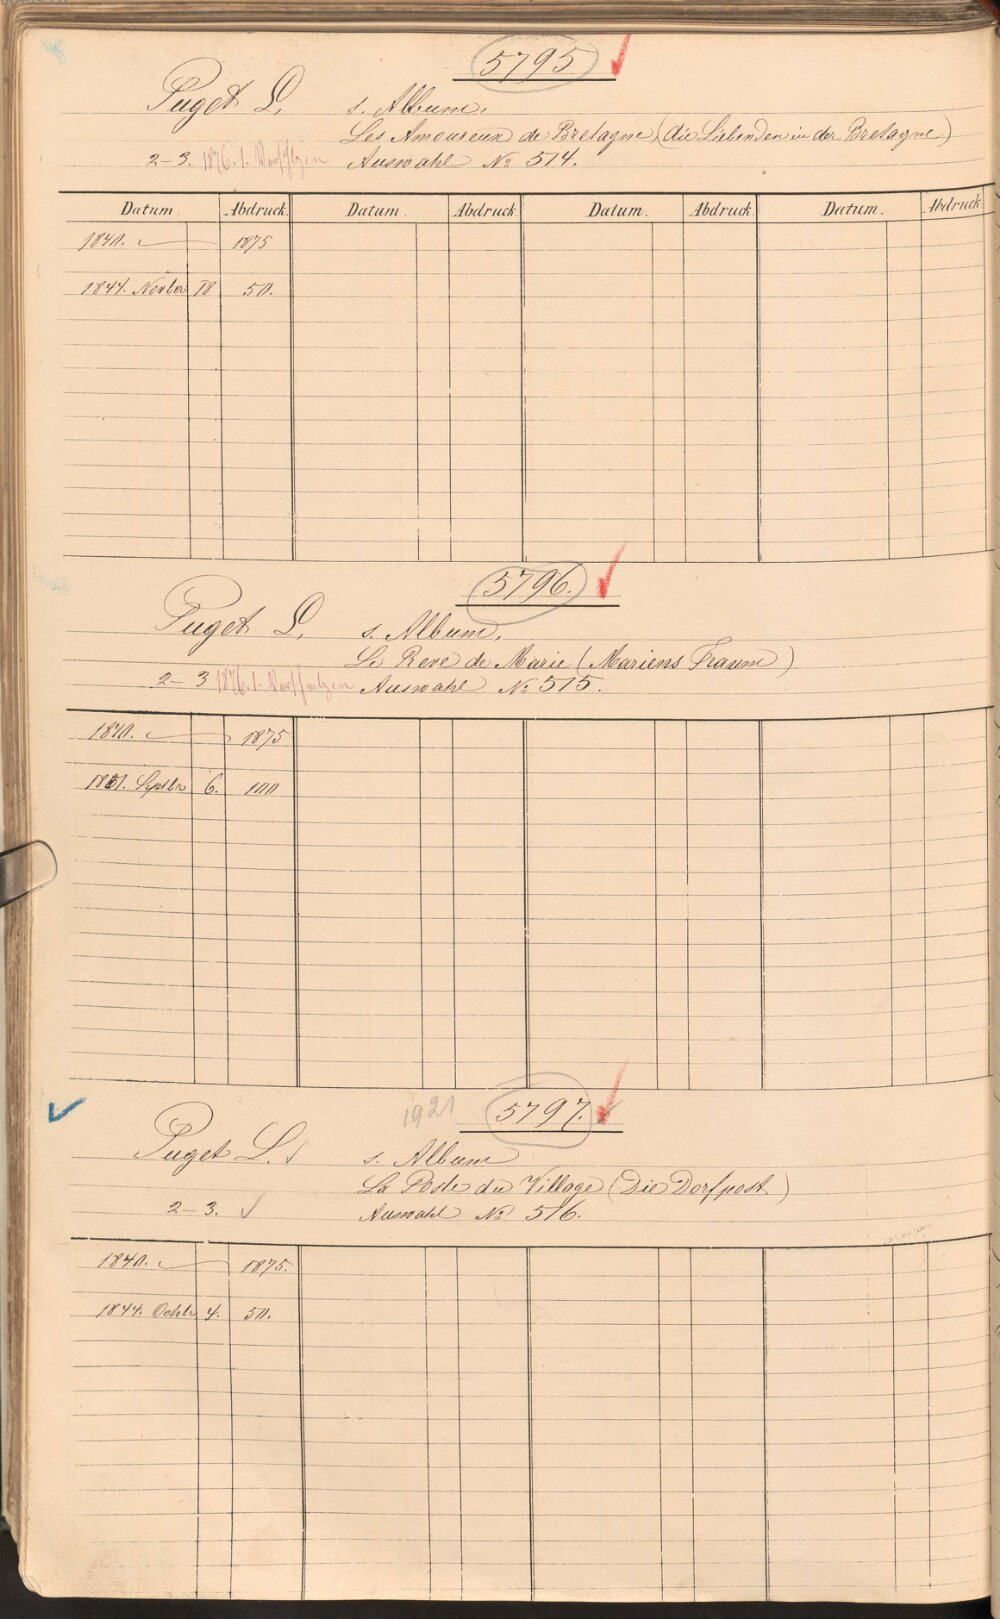 5795
Puget L.
s. Album.
Les Amoureux de Bretagne (die Liebenden in der Bretagne)
2-3. 1876. 1.
Auswahl No 514.
Datum. Abdruck. Datum. Abdruck. Datum. Abdruck. Datum. Abdruck.
1840. 1875
1844. Novbr 18 50.
5796.
Puget L.
s. Album.
Le Reve de Marie (Mariens Traum)
2-3 1876. 1.
Auswahl No 515.
1840. 1875
Septbr 6. 100
1921
5797.
Puget L.
s. Album
La Poste du Village (Die Dorfpost)
2-3.
Auswahl No 516.
1840. 1875.
1844. Octobr 4. 50.